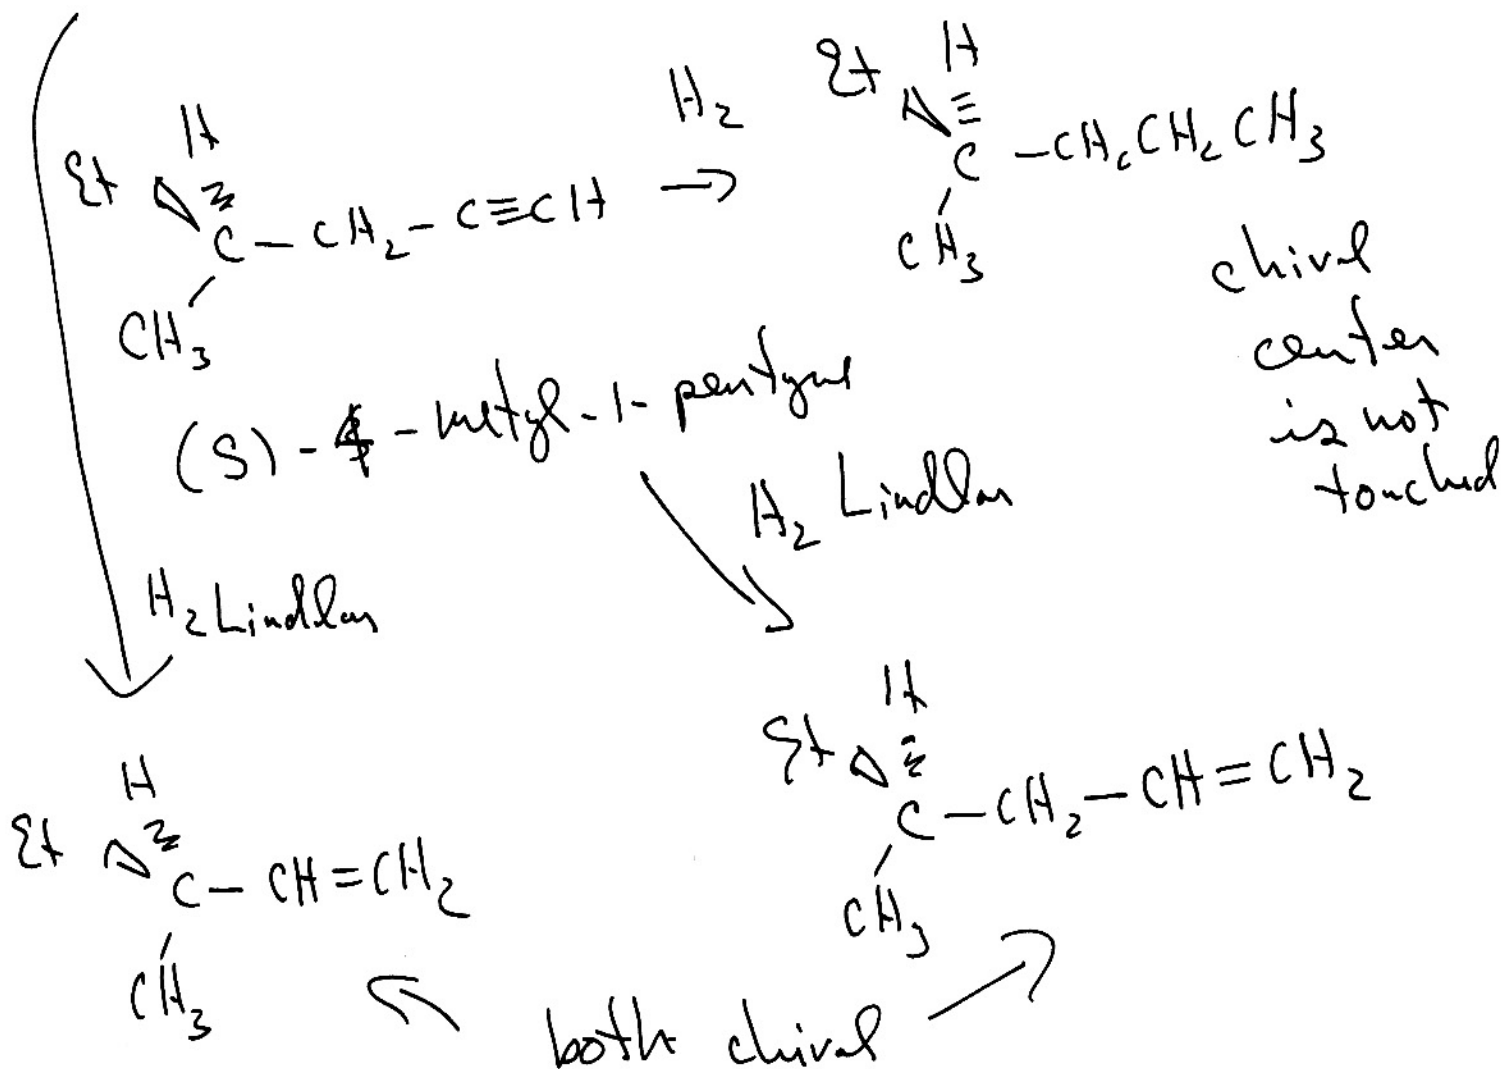 H
Et C - CH₂ - C≡CH
CH₃
H₂
→
Et H
C - CH₂CH₂CH₃
CH₃
chiral
center
is not
touched
(S) - 4 - metyl - 1 - pentyne
H₂ Lindlar
H₂ Lindlar
H
Et C - CH=CH₂
CH₃
H
Et C - CH₂ - CH=CH₂
CH₃
both chiral